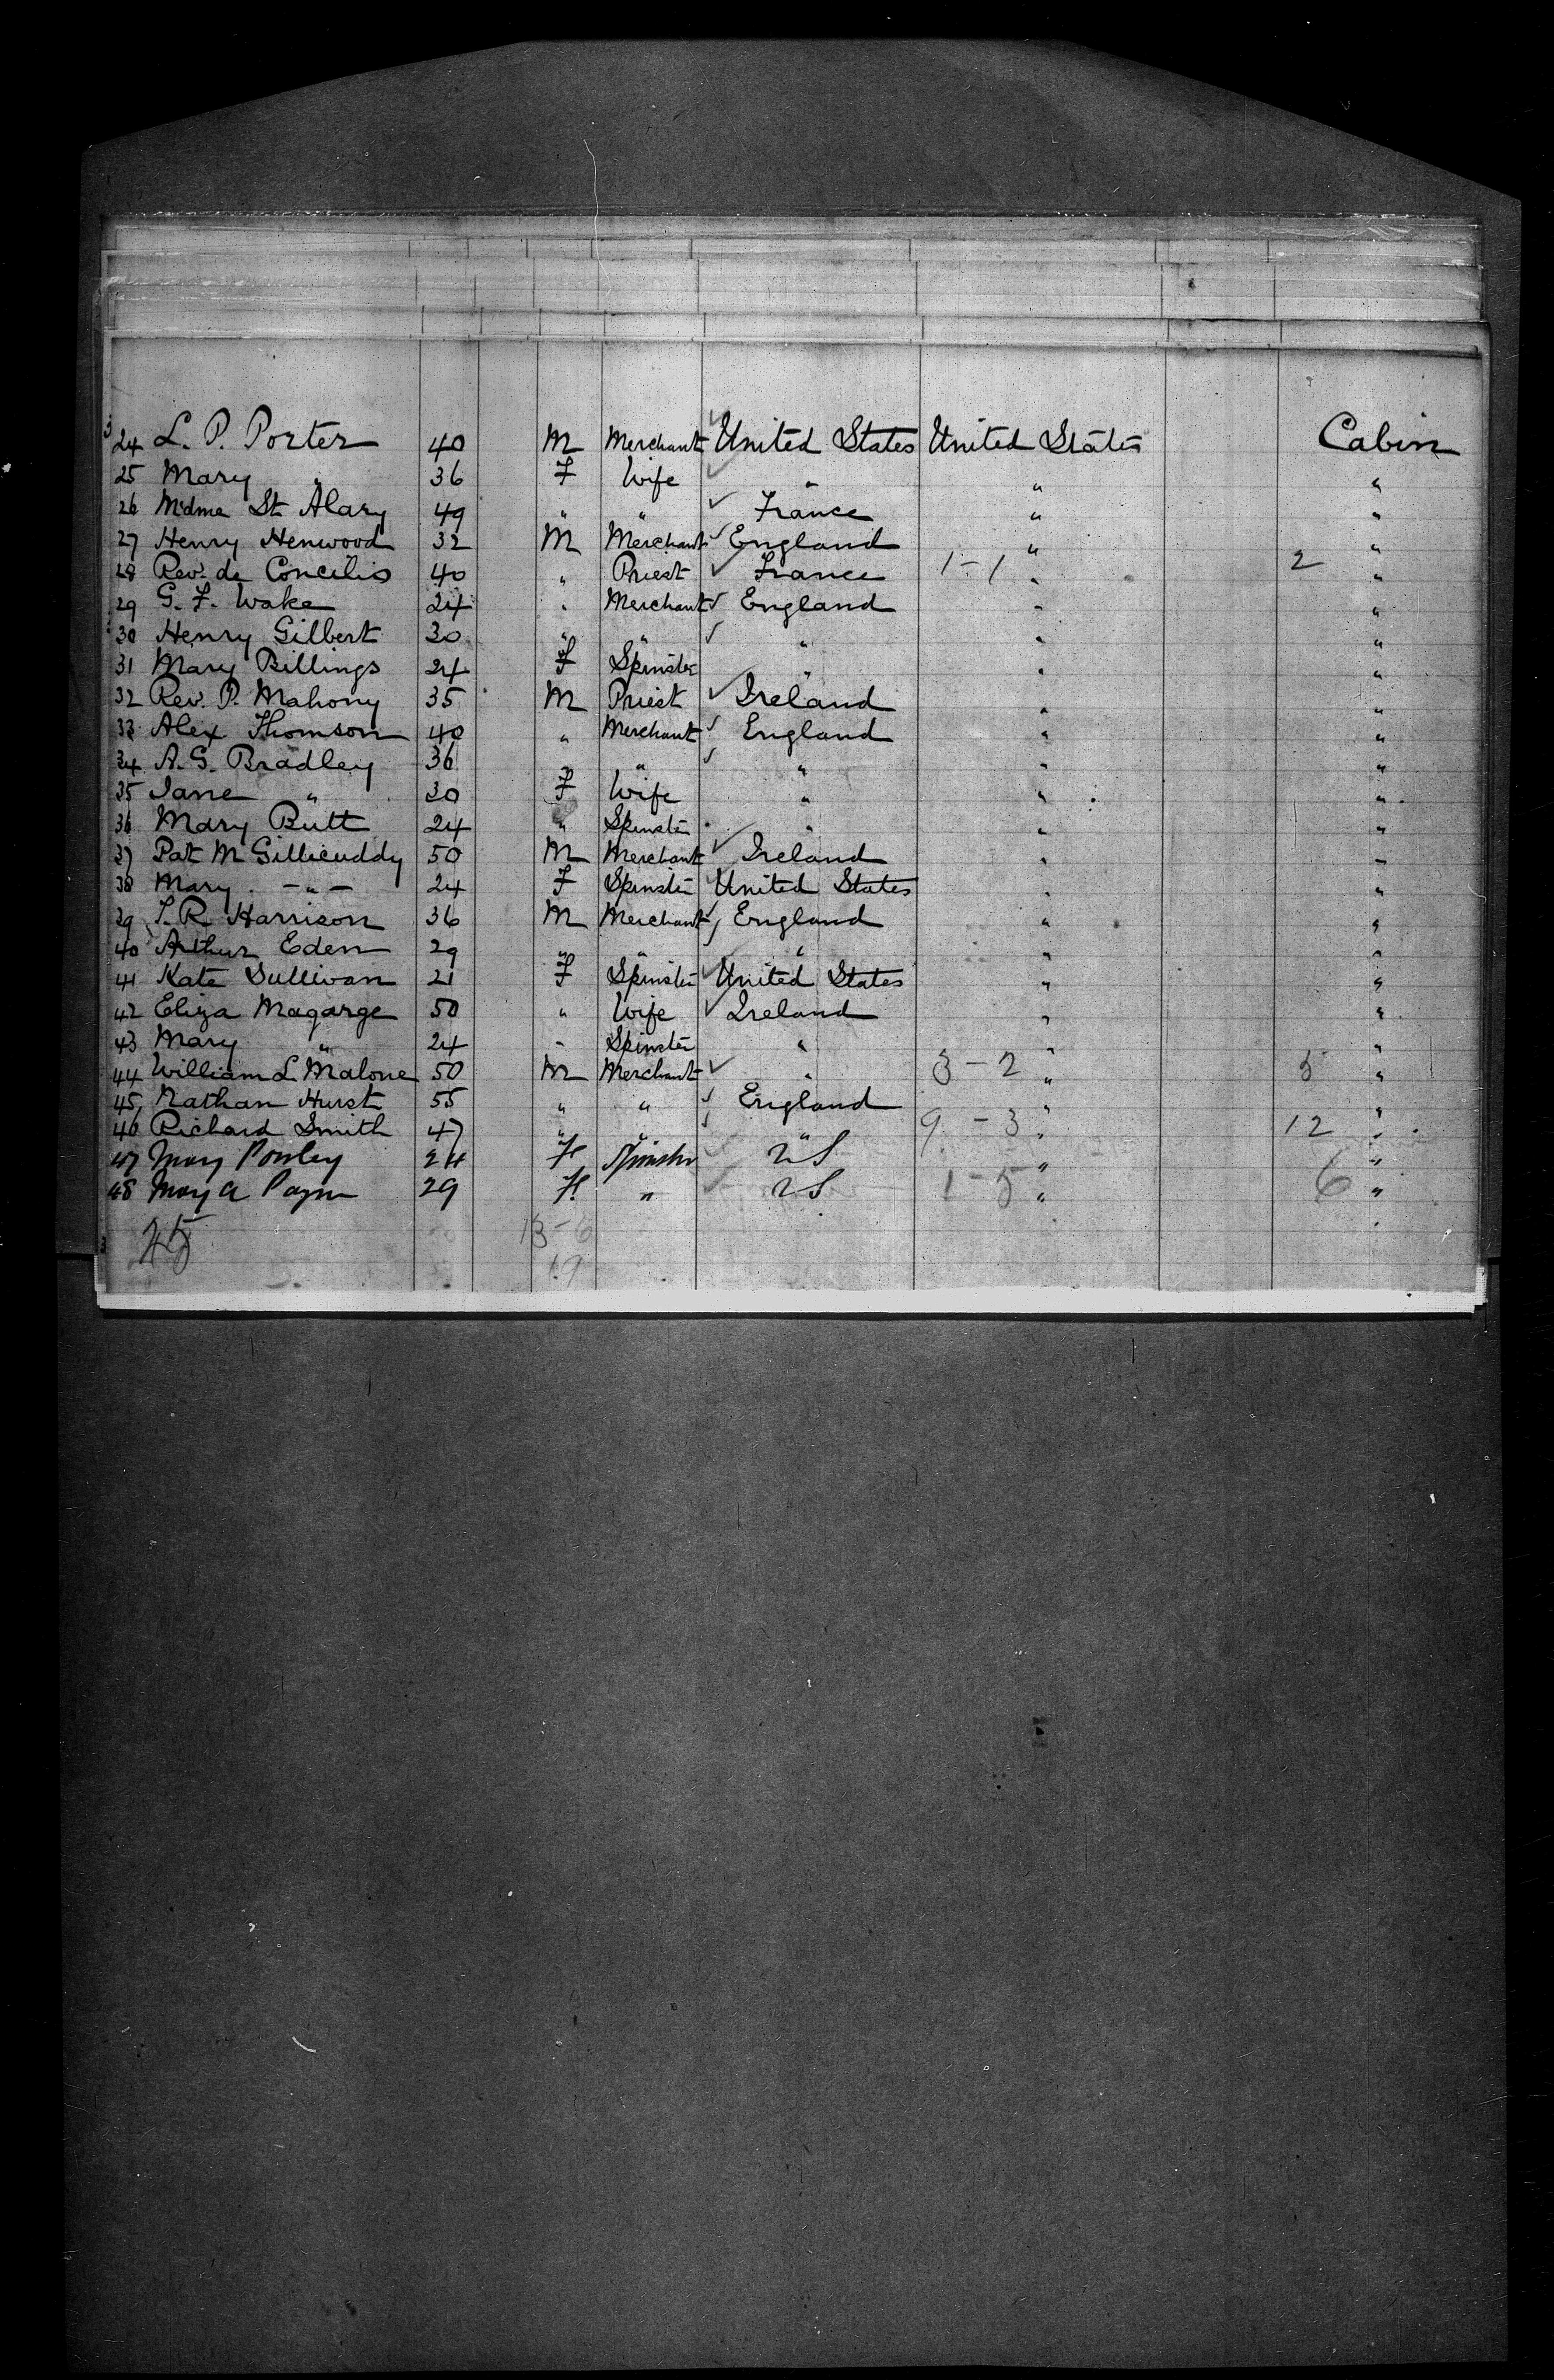 24 L. P. Porter 40 M Merchant United States United States Cabin
25 Mary " 36 F Wife " " "
26 Mdme St Alary 49 " " France " "
27 Henry Henwood 32 M Merchant England " "
28 Rev. de Concilio 40 " Priest France 1-1 " 2 "
29 G. F. Wake 24 " Merchant England " "
30 Henry Gilbert 30 " " " " "
31 Mary Billings 24 F Spinster " " "
32 Rev. P. Mahony 35 M Priest Ireland " "
33 Alex Thomson 40 " Merchant England " "
34 A. G. Bradley 36 " " " " "
35 Jane " 30 F Wife " " "
36 Mary Butt 24 " Spinster " " "
37 Pat McGillicuddy 50 M Merchant Ireland " "
38 Mary - " - 24 F Spinster United States " "
39 R. Harrison 36 M Merchant England " "
40 Arthur Eden 29 " " " " "
41 Kate Sullivan 21 F Spinster United States " "
42 Eliza Magarge 50 " Wife Ireland " "
43 Mary " 24 " Spinster " " "
44 William L. Malone 50 M Merchant " 3-2 " 5 "
45 Nathan Hurst 55 " " England " "
46 Richard Smith 47 " " " 9-3 " 12 "
47 Mary 24 F Spinster US " "
48 Mary A Payn 29 F. " US 1-5 " 6 "
13-6
19